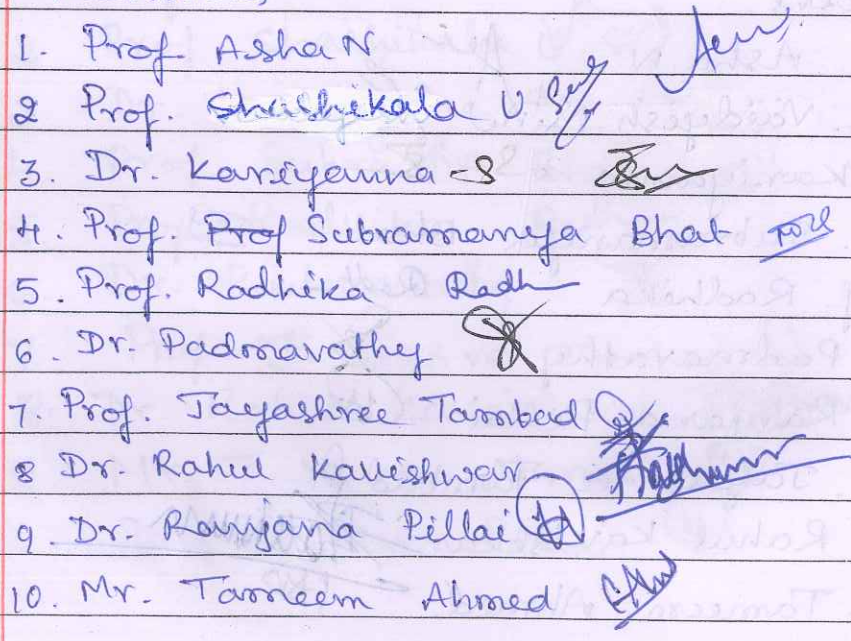 1. Prof. Asha N
2 Prof. Shashikala U
3. Dr. Kariyanna -S
4. Prof. Prof Subramaneya Bhat
5. Prof. Radhika Radh
6. Dr. Padmavathy
7. Prof. Jayashree Tambad
8 Dr. Rahul Kavishwar
9. Dr. Ranjana Pillai
10. Mr. Tameem Ahmed